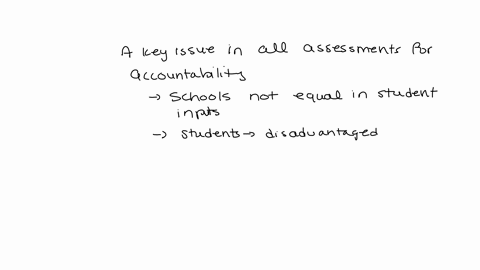 A key issue in all assessments for
accountability
→ Schools not equal in student
inputs
→ students → disadvantaged